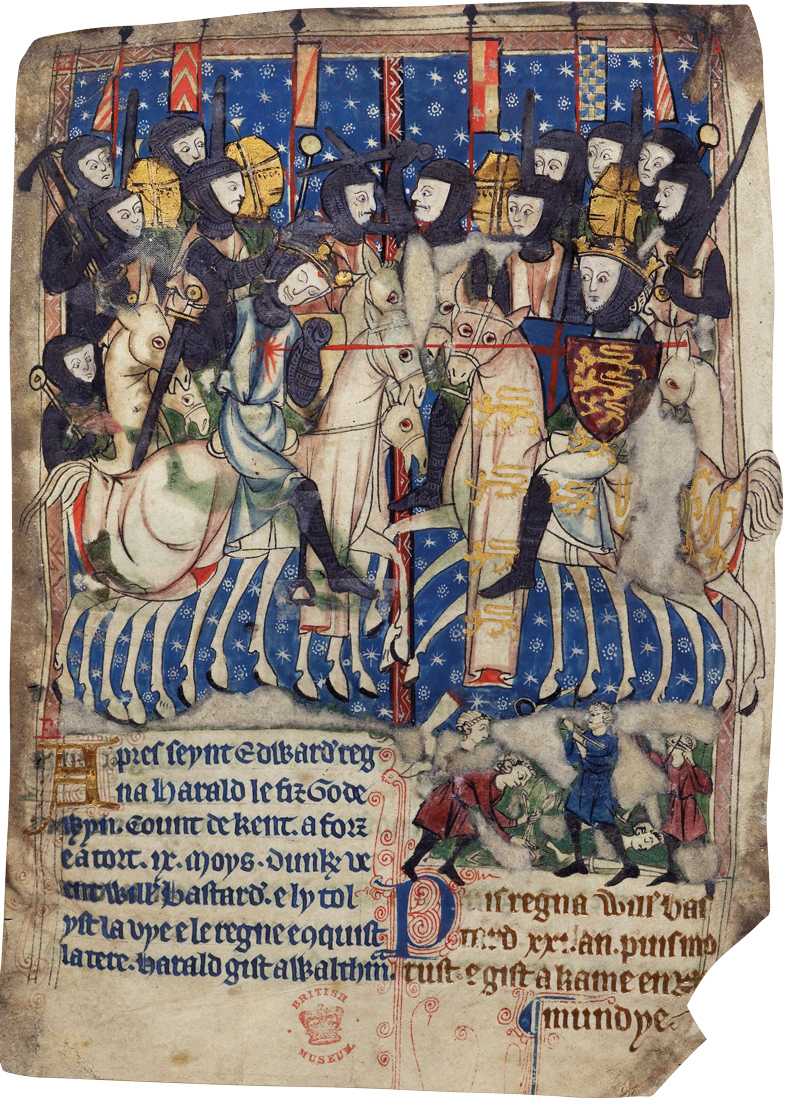 Apres seynt Edward reg
na harald le fiz Gode
wyn. Count de kent. a forz
e a tort. ix. moys. dunk ve
ent Will' bastard'. e ly tol
yst la vye e le regne e ꝯquist
la tere. harald gist a Walthm.
Puis regna Will' bas
tard xxi. an. puis mo
rust. e gist a kame en
mundye.
BRITISH
MUSEUM